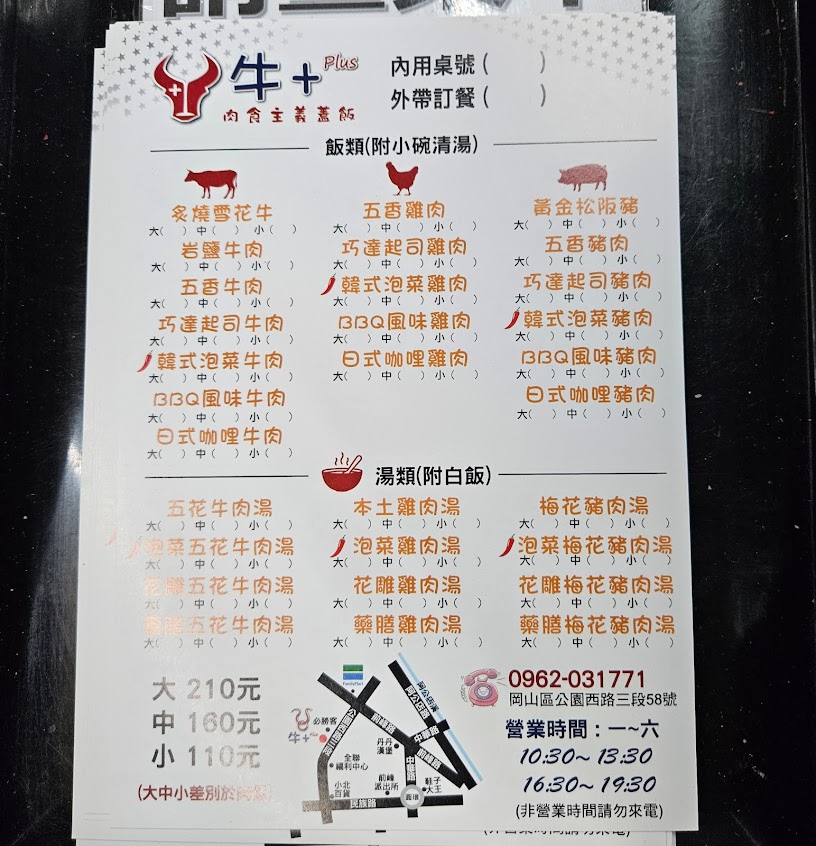 牛+ Plus
肉食主義蓋飯
內用桌號( )
外帶訂餐( )
飯類(附小碗清湯)
炙燒雪花牛
大( ) 中( ) 小( )
岩鹽牛肉
大( ) 中( ) 小( )
五香牛肉
大( ) 中( ) 小( )
巧達起司牛肉
大( ) 中( ) 小( )
韓式泡菜牛肉
大( ) 中( ) 小( )
BBQ風味牛肉
大( ) 中( ) 小( )
日式咖哩牛肉
大( ) 中( ) 小( )
五香雞肉
大( ) 中( ) 小( )
巧達起司雞肉
大( ) 中( ) 小( )
韓式泡菜雞肉
大( ) 中( ) 小( )
BBQ風味雞肉
大( ) 中( ) 小( )
日式咖哩雞肉
大( ) 中( ) 小( )
黃金松阪豬
大( ) 中( ) 小( )
五香豬肉
大( ) 中( ) 小( )
巧達起司豬肉
大( ) 中( ) 小( )
韓式泡菜豬肉
大( ) 中( ) 小( )
BBQ風味豬肉
大( ) 中( ) 小( )
日式咖哩豬肉
大( ) 中( ) 小( )
湯類(附白飯)
五花牛肉湯
大( ) 中( ) 小( )
泡菜五花牛肉湯
大( ) 中( ) 小( )
花雕五花牛肉湯
大( ) 中( ) 小( )
藥膳五花牛肉湯
大( ) 中( ) 小( )
本土雞肉湯
大( ) 中( ) 小( )
泡菜雞肉湯
大( ) 中( ) 小( )
花雕雞肉湯
大( ) 中( ) 小( )
藥膳雞肉湯
大( ) 中( ) 小( )
梅花豬肉湯
大( ) 中( ) 小( )
泡菜梅花豬肉湯
大( ) 中( ) 小( )
花雕梅花豬肉湯
大( ) 中( ) 小( )
藥膳梅花豬肉湯
大( ) 中( ) 小( )
大 210元
中 160元
小 110元
(大中小差別於肉量)
FamilyMart
阿公店溪
阿公店路
前峰路
中華路
前峰路
中華路
必勝客
牛+
丹丹
漢堡
全聯
福利中心
小北
百貨
前峰
派出所
鞋子
大王
圓環
民族路
0962-031771
岡山區公園西路三段58號
營業時間：一~六
10:30~13:30
16:30~19:30
(非營業時間請勿來電)